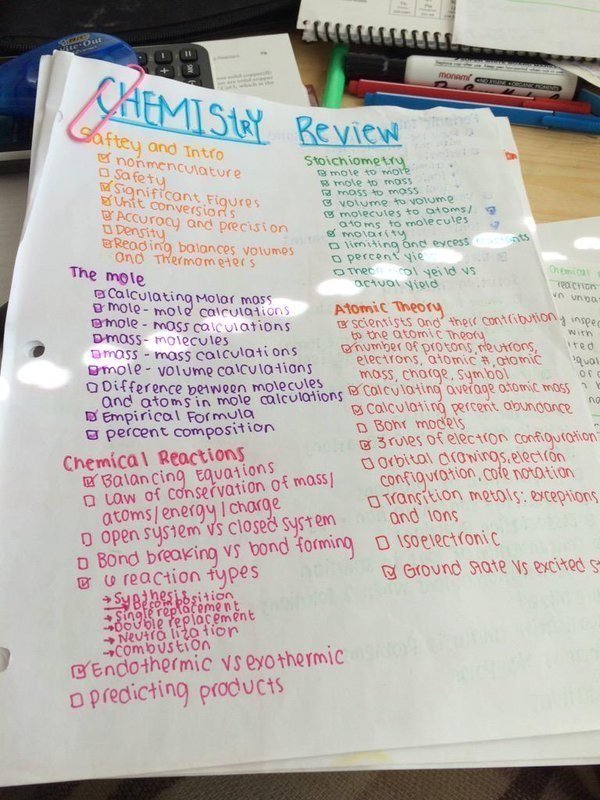 CHEMIStRY Review
Saftey and Intro
nonmenculature
Safety
Significant Figures
Unit conversions
Accuracy and precision
Density
Reading balances volumes
and Thermometers
The mole
Calculating Molar mass
mole - mole calculations
mole - mass calculations
mass - molecules
mass - mass calculations
mole - volume calculations
Difference between molecules
and atoms in mole calculations
Empirical Formula
percent composition
Chemical Reactions
Balancing Equations
Law of conservation of mass/
atoms/energy/charge
open system vs closed system
Bond breaking vs bond forming
6 reaction types
→ Synthesis
→ Decomposition
→ Single replacement
→ Double replacement
→ Neutralization
→ Combustion
Endothermic vs exothermic
predicting products
Stoichiometry
mole to mole
mole to mass
mass to mass
volume to volume
molecules to atoms/
atoms to molecules
molarity
limiting and excess
percent
vs
actual yield
Atomic Theory
scientists and their contribution
to the atomic Theory
number of protons, neutrons,
electrons, atomic #, atomic
mass, charge, symbol
Calculating average atomic mass
Calculating percent abundance
Bohr models
3 rules of electron configuration
Orbital drawings, electron
configuration, core notation
Transition metals; exceptions
and ions
Isoelectronic
Ground state vs excited
Wite-Out
MONAMI